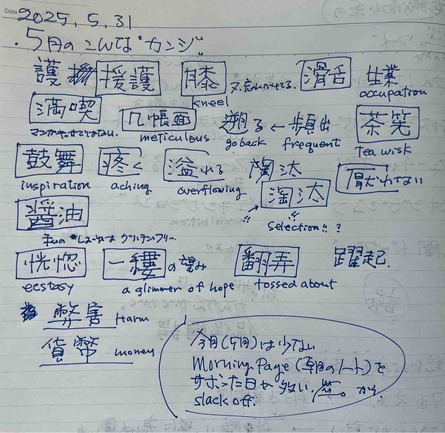 Date 2025. 5. 31
・5月のこんな"カンジ"
護 援護 膝 又、忘れかけてる。 滑舌 生業
kneel occupation
満喫 几帳面 遡る ← 頻出 茶筅
マンガキッサではない。 meticulous go back frequent Tea wisk
鼓舞 疼く 溢れる 陶汰
inspiration aching overflowing 淘汰
醤油 selection!!?
私の しょうゆは グルテンフリー。
恍惚 一縷の望み 翻弄 躍起
ecstasy a glimmer of hope tossed about
弊害 Harm
貨幣 money
今月(5月)は少ない
Morning Page (朝のノート)を
サボった日が多い から
slack off.